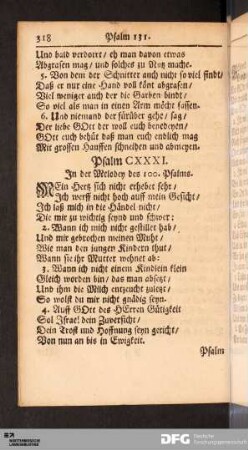 318 Psalm 131.
Und bald verdorrt / eh man davon etwas
Abgrasen mag / und solches zu Nutz mache.
5. Von dem der Schnitter auch nicht so viel findt /
Daß er nur eine Hand voll könt abgrasen /
Viel weniger auch der die Garben bindt /
So viel als man in einen Arm möcht fassen.
6. Und niemand der fürüber gehe / sag /
Der liebe GOtt der woll euch benedeyen /
GOtt euch behüt daß man euch endlich mag
Mit grossen Hauffen schneiden und abmeyen.
Psalm CXXXI.
In der Melodey des 100. Psalms.
MEin Hertz sich nicht erhebet sehr /
Ich werff nicht hoch auff mein Gesicht /
Ich laß mich in die Händel nicht /
Die mir zu wichtig seynd und schwer:
2. Wann ich mich nicht gestillet hab /
Und mit gebrochen meinen Muht /
Wie man den jungen Kindern thut /
Wann sie ihr Mutter wehnet ab:
3. Wann ich nicht einem Kindlein klein
Gleich worden bin / das man absetzt /
Und ihm die Milch entzeucht zuletzt /
So wolst du mir nicht gnädig seyn.
4. Auff GOtt des HErren Gütigkeit
Sol Israel dein Zuversicht /
Dein Trost und Hoffnung seyn gericht /
Von nun an bis in Ewigkeit.
Psalm
DFG
Deutsche
Forschungsgemeinschaft